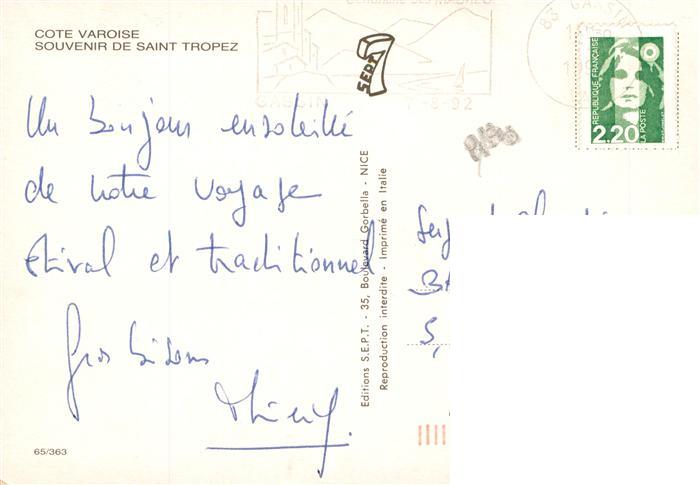 COTE VAROISE
SOUVENIR DE SAINT TROPEZ
SEPT
GASSIN
-8-92
83 GASSIN
RÉPUBLIQUE FRANÇAISE
2,20
LA POSTE
Un bonjour ensoleillé
de notre voyage
estival et traditionnel
Gros bisous
Thierry
Editions S.E.P.T. - 35, Boulevard Gorbella - NICE
Reproduction interdite - Imprimé en Italie
5,
65/363